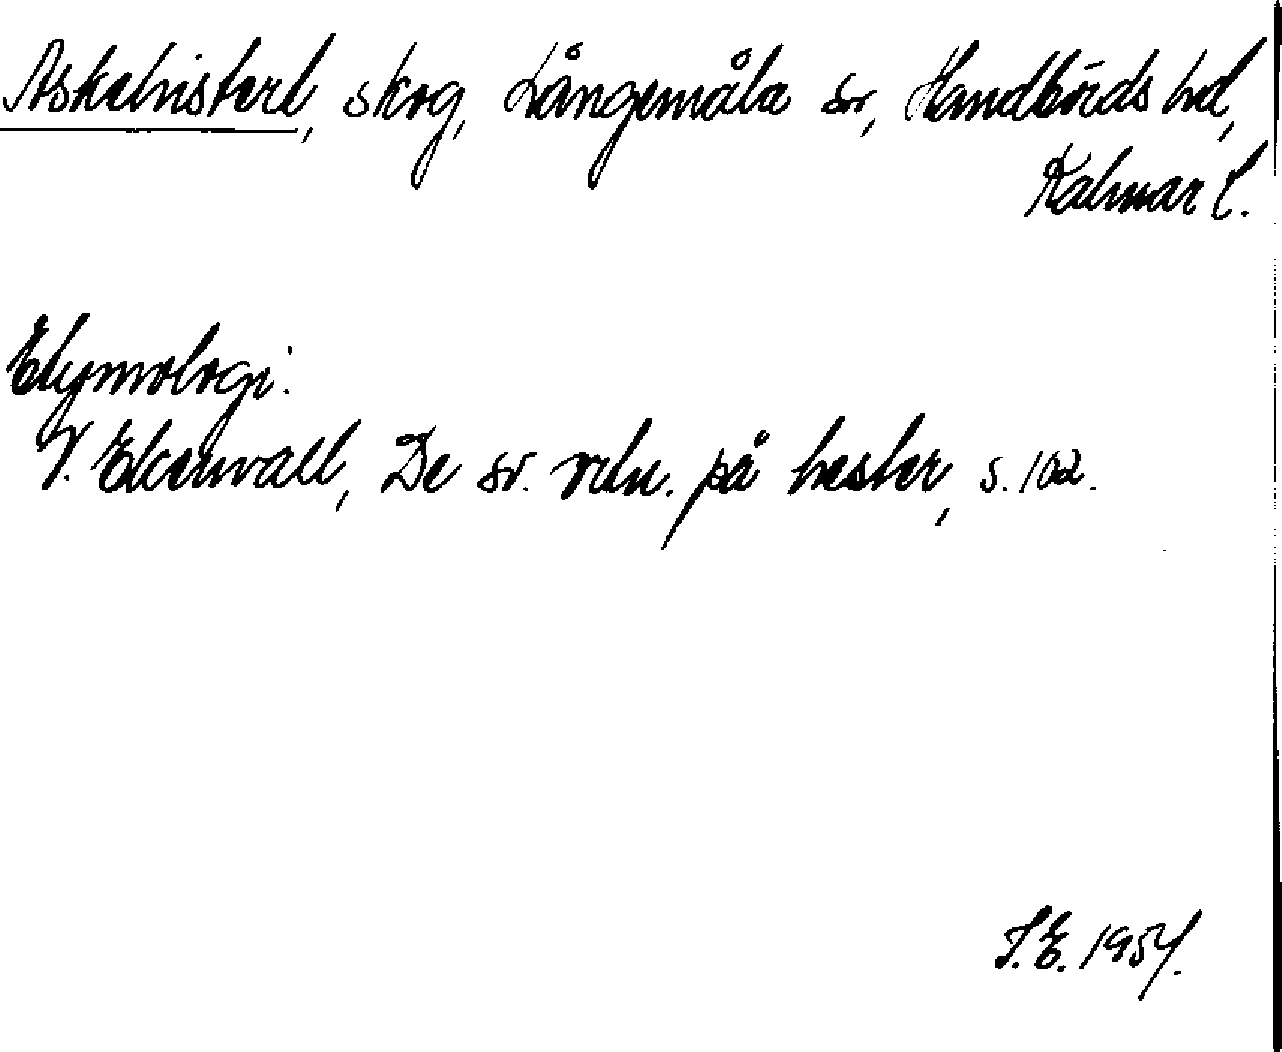 Askahistert, skog, Långemåla sn, Handbörds hd,
Kalmar l.
Etymologi:
V. Ekenvall, De sv. ortn. på hester, s. 102.
I.E. 1954.